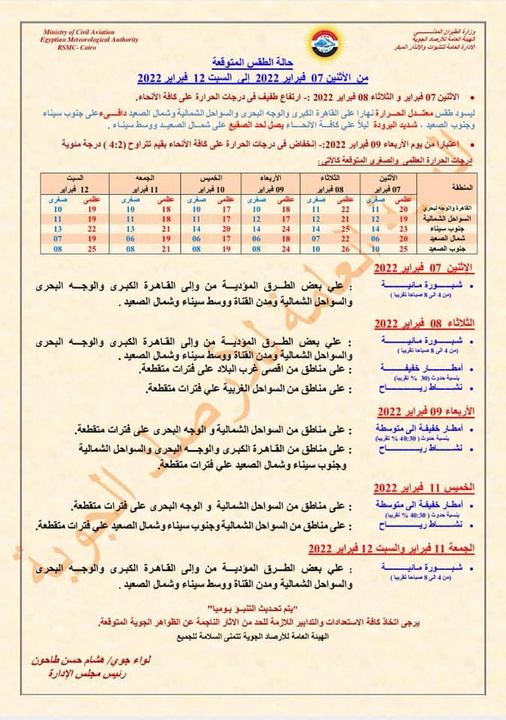 Ministry of Civil Aviation
Egyptian Meteorological Authority
RSMC- Cairo
وزارة الطيران المدنـــي
الهيئة العامة للأرصاد الجوية
الإدارة العامة للتنبؤات والإنذار المبكر
حالة الطقس المتوقعة
من الأثنين 07 فبراير 2022 إلى السبت 12 فبراير 2022
• الأثنين 07 فبراير و الثلاثاء 08 فبراير 2022 :- ارتفاع طفيف فى درجات الحرارة على كافة الأنحاء.
ليسود طقس معتدل الحرارة نهارا على القاهرة الكبرى والوجه البحرى والسواحل الشمالية وشمال الصعيد دافىء على جنوب سيناء
وجنوب الصعيد ، شديد البرودة ليلاً على كافة الأنحاء يصل لحد الصقيع على شمال الصعيد ووسط سيناء .
• اعتبارا من يوم الأربعاء 09 فبراير 2022:- إنخفاض فى درجات الحرارة على كافة الأنحاء بقيم تتراوح (4:2) درجة مئوية
درجات الحرارة العظمى والصغرى المتوقعة كالآتى:
المنطقة الأثنين الثلاثاء الأربعاء الخميس الجمعة السبت
07 فبراير 08 فبراير 09 فبراير 10 فبراير 11 فبراير 12 فبراير
عظمى صغرى عظمى صغرى عظمى صغرى عظمى صغرى عظمى صغرى عظمى صغرى
القاهرة والوجه البحرى 20 11 22 11 18 10 17 10 18 10 19 10
السواحل الشمالية 19 12 21 12 17 11 17 11 18 11 19 11
جنوب سيناء 23 14 25 14 24 14 20 14 21 13 22 13
شمال الصعيد 20 06 22 06 18 06 17 06 18 06 19 07
جنوب الصعيد 25 10 26 10 24 09 23 09 21 08 25 08
الأثنين 07 فبراير 2022
• شــبـــورة مـائـيــة : علي بعض الطـرق المؤديـة مـن وإلى القـاهرة الكبـرى والوجــه البحرى
(من 4 إلى 8 صباحا تقريبا) والسواحل الشمالية ومدن القناة ووسط سيناء وشمال الصعيد .
الثلاثاء 08 فبراير 2022
• شــبـــورة مـائـيــة : علي بعض الطـرق المؤديـة مـن وإلى القـاهرة الكبـرى والوجــه البحرى
(من 4 إلى 8 صباحا تقريبا) والسواحل الشمالية ومدن القناة ووسط سيناء وشمال الصعيد .
• أمطــار خفيفــة : على مناطق من أقصى غرب البلاد على فترات متقطعة.
(بنسبة حدوث 30 % تقريبا)
• نشــاط ريـــاح : على مناطق من السواحل الغربية علي فترات متقطعة.
الأربعاء 09 فبراير 2022
• أمطار خفيفة الى متوسطة : على مناطق من السواحل الشمالية و الوجه البحرى على فترات متقطعة.
(بنسبة حدوث 40:30 % تقريبا)
• نشــاط ريـــاح : على مناطق من القاهرة الكبرى والوجه البحرى والسواحل الشمالية
وجنوب سيناء وشمال الصعيد علي فترات متقطعة.
الخميس 11 فبراير 2022
• أمطار خفيفة الى متوسطة : على مناطق من السواحل الشمالية و الوجه البحرى على فترات متقطعة.
(بنسبة حدوث 40:30 % تقريبا)
• نشــاط ريـــاح : على مناطق من السواحل الشمالية وجنوب سيناء وشمال الصعيد علي فترات متقطعة.
الجمعة 11 فبراير والسبت 12 فبراير 2022
• شــبـــورة مـائـيــة : علي بعض الطـرق المؤديـة مـن وإلى القـاهرة الكبـرى والوجــه البحرى
(من 4 إلى 8 صباحا تقريبا) والسواحل الشمالية ومدن القناة ووسط سيناء وشمال الصعيد .
"يتم تحديث التنبؤ يوميا"
يرجى اتخاذ كافة الاستعدادات والتدابير اللازمة للحد من الآثار الناجمة عن الظواهر الجوية المتوقعة.
الهيئة العامة للأرصاد الجوية تتمنى السلامة للجميع
لواء جوي/ هشام حسن طاحون
رئيس مجلس الإدارة
الهيئة العامة للأرصاد الجوية